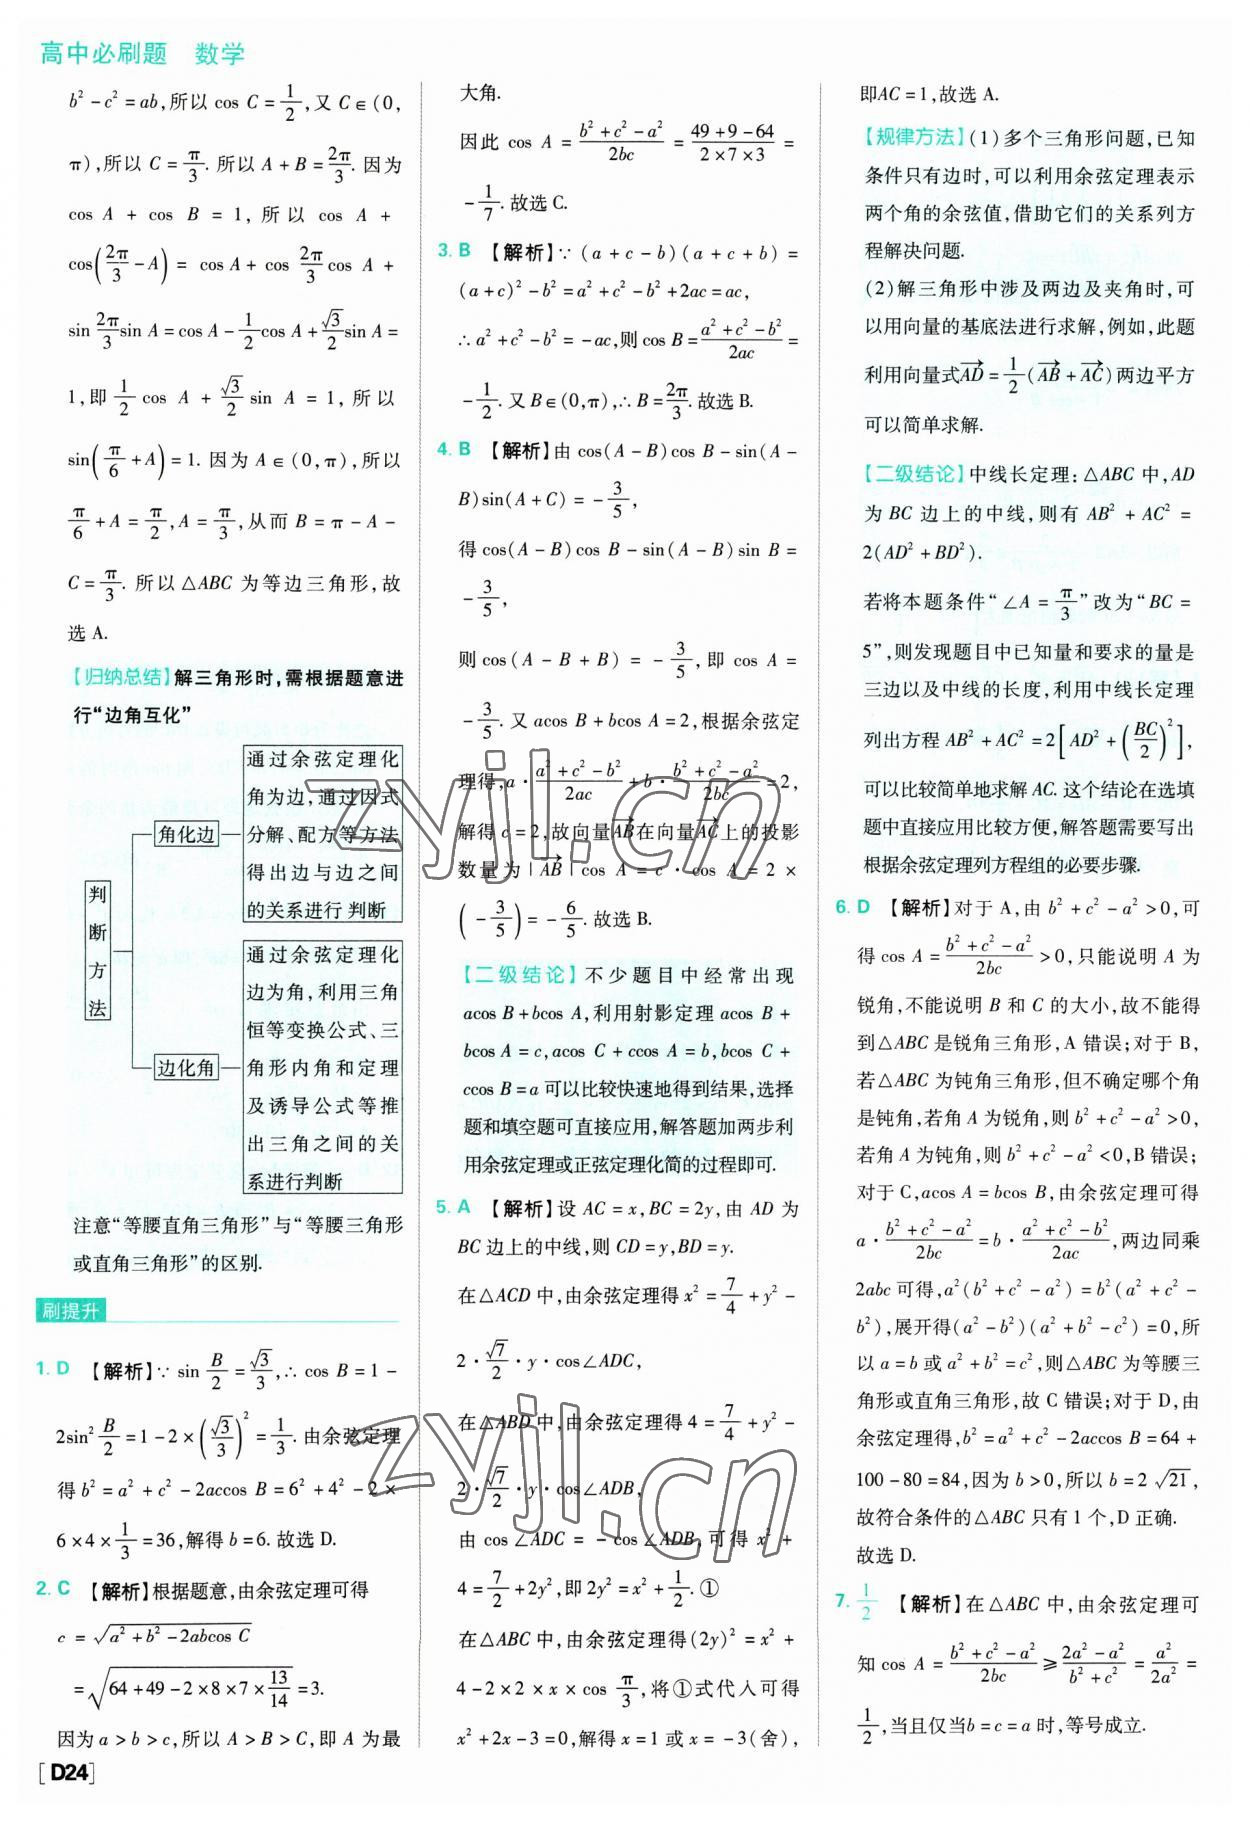 高中必刷题 数学
b² - c² = ab,所以 cos C = 1/2,又 C∈(0,
π),所以 C = π/3. 所以 A + B = 2π/3. 因为
cos A + cos B = 1, 所以 cos A +
cos(2π/3 - A) = cos A + cos 2π/3 cos A +
sin 2π/3 sin A = cos A - 1/2 cos A + √3/2 sin A =
1,即 1/2 cos A + √3/2 sin A = 1, 所以
sin(π/6 + A) = 1. 因为 A∈(0,π),所以
π/6 + A = π/2, A = π/3,从而 B = π - A -
C = π/3. 所以 △ABC 为等边三角形,故
选 A.
【归纳总结】解三角形时,需根据题意进
行“边角互化”
判断方法
角化边
通过余弦定理化
角为边,通过因式
分解、配方等方法
得出边与边之间
的关系进行 判断
边化角
通过余弦定理化
边为角,利用三角
恒等变换公式、三
角形内角和定理
及诱导公式等推
出三角之间的关
系进行判断
注意“等腰直角三角形”与“等腰三角形
或直角三角形”的区别.
刷提升
1. D 【解析】∵ sin B/2 = √3/3,∴ cos B = 1 -
2sin² B/2 = 1 - 2×(√3/3)² = 1/3. 由余弦定理
得 b² = a² + c² - 2accos B = 6² + 4² - 2×
6×4×1/3 = 36,解得 b = 6. 故选 D.
2. C 【解析】根据题意,由余弦定理可得
c = √(a² + b² - 2abcos C)
= √(64 + 49 - 2×8×7×13/14) = 3.
因为 a > b > c,所以 A > B > C,即 A 为最
[D24]
大角.
因此 cos A = (b² + c² - a²)/2bc = (49 + 9 - 64)/(2×7×3) =
-1/7. 故选 C.
3. B 【解析】∵ (a + c - b)(a + c + b) =
(a + c)² - b² = a² + c² - b² + 2ac = ac,
∴ a² + c² - b² = -ac,则 cos B = (a² + c² - b²)/2ac =
-1/2. 又 B∈(0,π),∴ B = 2π/3. 故选 B.
4. B 【解析】由 cos(A - B)cos B - sin(A -
B)sin(A + C) = -3/5,
得 cos(A - B)cos B - sin(A - B)sin B =
-3/5,
则 cos(A - B + B) = -3/5,即 cos A =
-3/5. 又 acos B + bcos A = 2,根据余弦定
理得,a·(a² + c² - b²)/2ac + b·(b² + c² - a²)/2bc = 2,
解得 c = 2,故向量AB→在向量AC→上的投影
数量为 |AB→|cos A = c·cos A = 2×
(-3/5) = -6/5. 故选 B.
【二级结论】不少题目中经常出现
acos B + bcos A,利用射影定理 acos B +
bcos A = c, acos C + ccos A = b, bcos C +
ccos B = a 可以比较快速地得到结果,选择
题和填空题可直接应用,解答题加两步利
用余弦定理或正弦定理化简的过程即可.
5. A 【解析】设 AC = x, BC = 2y,由 AD 为
BC 边上的中线,则 CD = y, BD = y.
在△ACD 中,由余弦定理得 x² = 7/4 + y² -
2·√7/2·y·cos∠ADC,
在△ABD 中,由余弦定理得 4 = 7/4 + y² -
2·√7/2·y·cos∠ADB,
由 cos∠ADC = -cos∠ADB,可得 x² +
4 = 7/2 + 2y²,即 2y² = x² + 1/2. ①
在△ABC 中,由余弦定理得(2y)² = x² +
4 - 2×2×x×cos π/3,将①式代入可得
x² + 2x - 3 = 0,解得 x = 1 或 x = -3(舍),
即AC = 1,故选 A.
【规律方法】(1)多个三角形问题,已知
条件只有边时,可以利用余弦定理表示
两个角的余弦值,借助它们的关系列方
程解决问题.
(2)解三角形中涉及两边及夹角时,可
以用向量的基底法进行求解,例如,此题
利用向量式AD→ = 1/2(AB→ + AC→)两边平方
可以简单求解.
【二级结论】中线长定理:△ABC 中,AD
为 BC 边上的中线,则有 AB² + AC² =
2(AD² + BD²).
若将本题条件“∠A = π/3”改为“BC =
5”,则发现题目中已知量和要求的量是
三边以及中线的长度,利用中线长定理
列出方程 AB² + AC² = 2[AD² + (BC/2)²],
可以比较简单地求解 AC. 这个结论在选填
题中直接应用比较方便,解答题需要写出
根据余弦定理列方程组的必要步骤.
6. D 【解析】对于 A,由 b² + c² - a² > 0,可
得 cos A = (b² + c² - a²)/2bc > 0,只能说明 A 为
锐角,不能说明 B 和 C 的大小,故不能得
到△ABC 是锐角三角形,A 错误;对于 B,
若△ABC 为钝角三角形,但不确定哪个角
是钝角,若角 A 为锐角,则 b² + c² - a² > 0,
若角 A 为钝角,则 b² + c² - a² < 0,B 错误;
对于 C,acos A = bcos B,由余弦定理可得
a·(b² + c² - a²)/2bc = b·(a² + c² - b²)/2ac,两边同乘
2abc 可得,a²(b² + c² - a²) = b²(a² + c² -
b²),展开得(a² - b²)(a² + b² - c²) = 0,所
以 a = b 或 a² + b² = c²,则△ABC 为等腰三
角形或直角三角形,故 C 错误;对于 D,由
余弦定理得,b² = a² + c² - 2accos B = 64 +
100 - 80 = 84,因为 b > 0,所以 b = 2√21,
故符合条件的△ABC 只有 1 个,D 正确.
故选 D.
7. 1/2 【解析】在△ABC 中,由余弦定理可
知 cos A = (b² + c² - a²)/2bc ≥ (2a² - a²)/(b² + c²) = a²/2a² =
1/2,当且仅当b = c = a 时,等号成立.
zyjl.cn
zyjl.cn